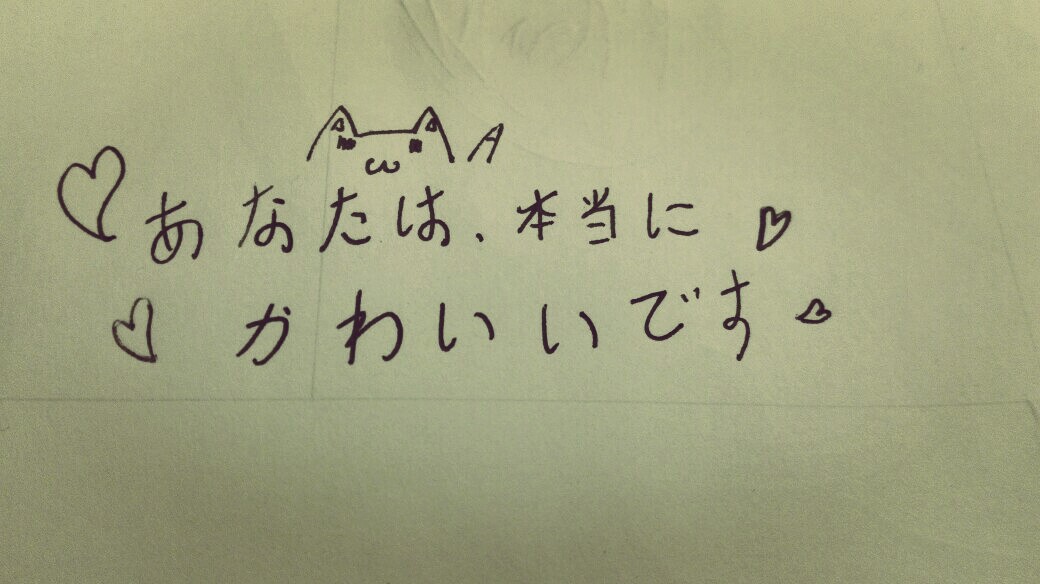 A
あなたは、本当に
かわいいです